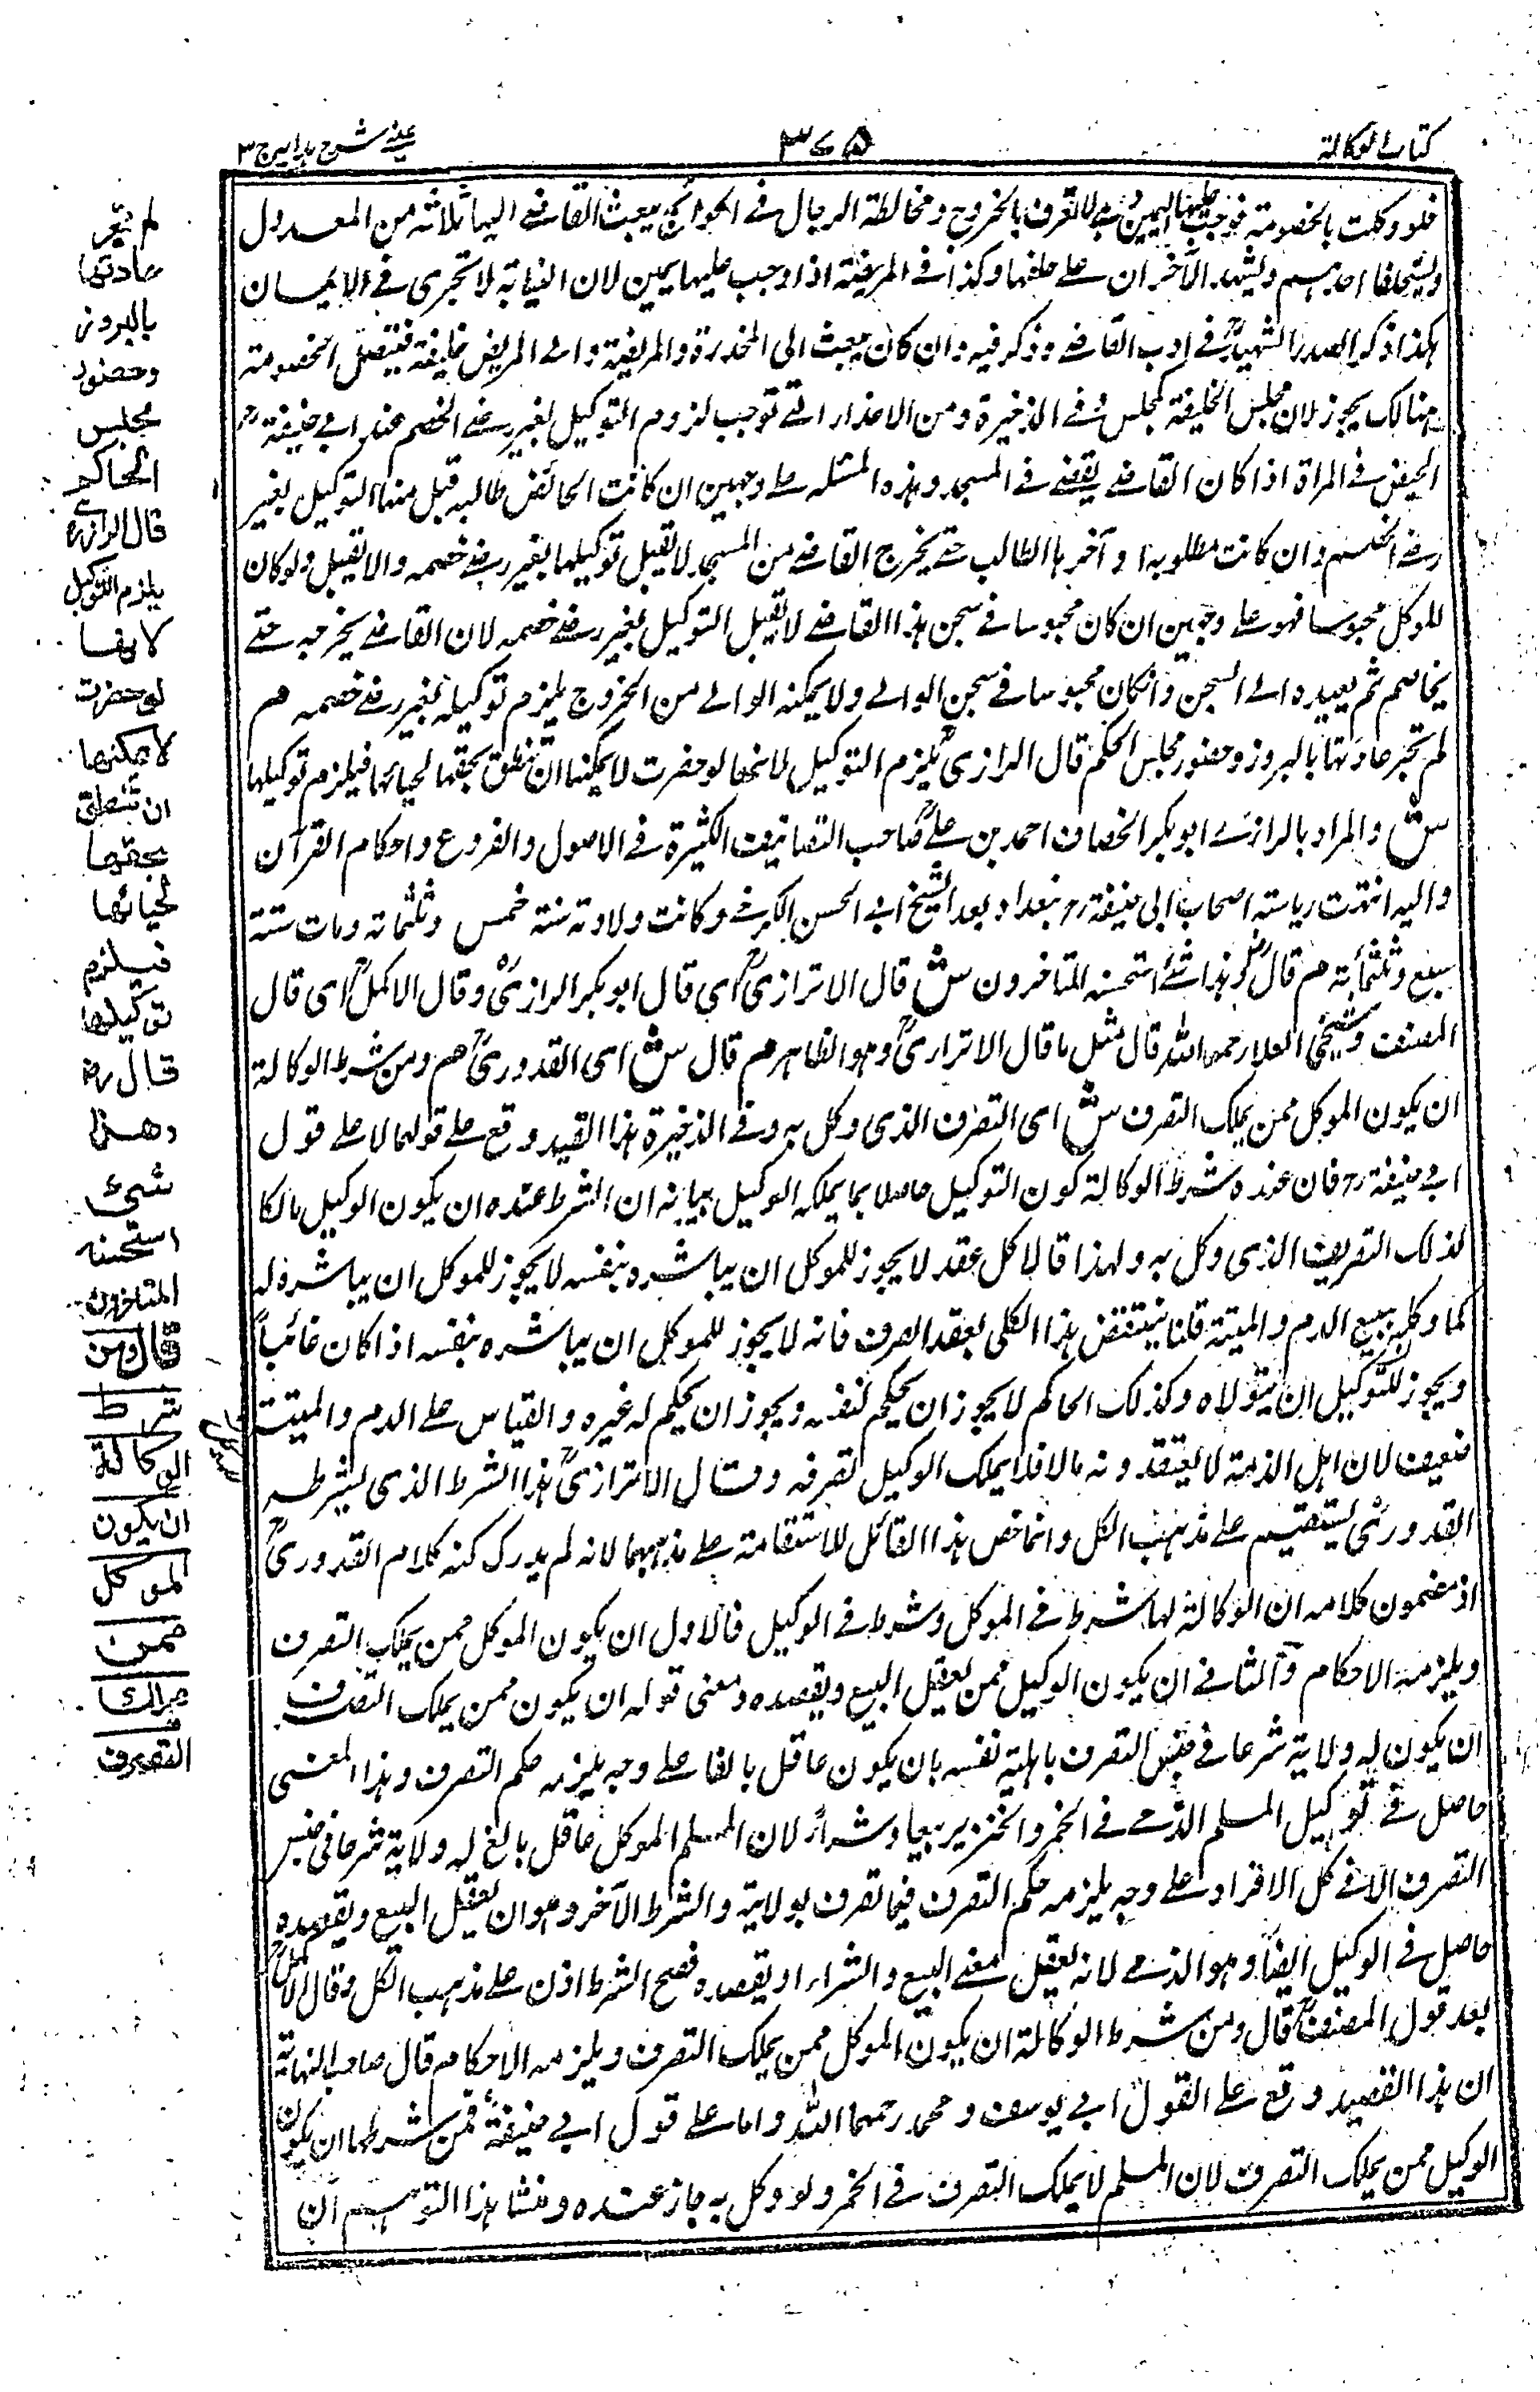 كتاب الوكالة
٣٧٥
عينى شرح هدايه ج ٣
فلو وكلت بالخصومة فوجب عليها اليمين وهى لا تعرف بالخروج ومخالطة الرجال فى الحوائج يبعث القاضى اليها ثلاثة من العدول
ويستحلفها احدهم ويشهد الآخران على حلفها وكذا فى المريضة اذا وجب عليها يمين لان النيابة لا تجرى فى الايمان
هكذا ذكر الصدر الشهيدؒ فى ادب القاضى وذكر فيه وان كان يبعث الى المخدرة والمريضة والى المريض خليفة فيفصل الخصومة
هنالك يجوز لان مجلس الخليفة كمجلسه وفى الذخيرة ومن الاعذار التى توجب لزوم التوكيل بغير رضى الخصم عند ابى حنيفة رح
الحيض فى المرأة اذا كان القاضى يقضى فى المسجد وهذه المسئلة على وجهين ان كانت الحائض طالبة قبل منها التوكيل بغير
رضى الخصم وان كانت مطلوبة او آخرها الطالب حتى يخرج القاضى من المسجد لا يقبل توكيلها بغير رضى خصمه والا يقبل ولو كان
للموكل محبوسا فهو على وجهين ان كان محبوسا فى سجن هذا القاضى لا يقبل التوكيل بغير رضى خصمه لان القاضى يخرجه حتى
يخاصم ثم يعيده الى السجن وانكان محبوسا فى سجن الوالى ولا يمكنه الوالى من الخروج يلزم توكيله بغير رضى خصمه م
لم تجر عادتها بالبروز وحضور مجلس الحكم قال الرازىؒ يلزم التوكيل لانها لو حضرت لا يمكنها ان تنطق بحقها لحيائها فيلزم توكيلها
ش والمراد بالرازى ابو بكر الخصاف احمد بن علىؒ صاحب التصانيف الكثيرة فى الاصول والفروع واحكام القرآن
واليه انتهت رياسة اصحاب ابى حنيفة رح ببغداد بعد الشيخ ابى الحسن الكرخى وكانت ولادته سنة خمس وثلثمائة ومات سنة
سبع وثلثمأية م قال رض وهذا شئ استحسنه المتاخرون ش قال الاترازىؒ اى قال ابو بكر الرازىؒ وقال الاكملؒ اى قال
المصنف وشيخى العلا رحمه الله قال مثل ما قال الاترارىؒ وهو الظاهر م قال ش اى القدورىؒ م ومن شرط الوكالة
ان يكون الموكل ممن يملك التصرف ش اى التصرف الذى وكل به وفى الذخيرة هذا القيد وقع على قولهما لا على قول
ابى حنيفة رح فان عنده شرط الوكالة كون التوكيل حاصلا بما يملكه الوكيل بيانه ان الشرط عنده ان يكون الوكيل مالكا
لذلك التصرف الذى وكل به ولهذا قالا كل عقد لا يجوز للموكل ان يباشره بنفسه لا يجوز للموكل ان يباشره له
كما وكله ببيع الدم والميتة قلنا ينتقض هذا الكلى بعقد الصرف فانه لا يجوز للموكل ان يباشره بنفسه اذا كان غائباً
ويجوز للتوكيل ان يتولاه وكذلك الحاكم لا يجوز ان يحكم لنفسه ويجوز ان يحكم له غيره والقياس على الدم والميتة
ضعيف لان اهل الذمة لا يعتقدونه مالا فلا يملك الوكيل تصرفه وقال الاترازىؒ هذا الشرط الذى يشرطه
القدورىؒ يستقيم على مذهب الكل وانما خص هذا القائل للاستقامة على مذهبهما لانه لم يدرك كنه كلام القدورىؒ
اذ مضمون كلامه ان الوكالة لها شرط فى الموكل وشرط فى الوكيل فالاول ان يكون الموكل ممن يملك التصرف
ويلزمه الاحكام والثانى ان يكون الوكيل ممن يعقل البيع ويقصده ومعنى قوله ان يكون ممن يملك التصرف
ان يكون له ولاية شرعا فى جنس التصرف باهلية نفسه بان يكون عاقل بالغا على وجه يلزمه حكم التصرف وهذا المعنى
حاصل فى توكيل المسلم الذمى فى الخمر والخنزير بيعا وشراءً لان المسلم الموكل عاقل بالغ له ولاية شرعا فى جنس
التصرف الا فى كل الافراد على وجه يلزمه حكم التصرف فيما تصرف بولاية والشرط الآخر وهو ان يعقل البيع ويقصده
حاصل فى الوكيل ايضاً وهو الذمى لانه يعقل معنى البيع والشراء او يقصده فصح الشرط اذن على مذهب الكل وقال الاكملؒ
بعد قول المصنفؒ قال ومن شرط الوكالة ان يكون الموكل ممن يملك التصرف ويلزمه الاحكام قال صاحب النهاية
ان هذا القصيد وقع على القول ابى يوسف ومحمد رحمهما الله واما على قول ابى حنيفةؒ فمن شرطها ان يكون
الوكيل ممن يملك التصرف لان المسلم لا يملك التصرف فى الخمر ولو وكل به جاز عنده ومنشا هذا التوهم ان
لم تجر
عادتها
بالبروز
وحضور
مجلس
الحاكم
قال الرازى
يلزم التوكيل
لانها
لو حضرت
لا يمكنها
ان تنطق
بحقها
لحيائها
فيلزم
توكيلها
قال رض
وهذا
شئ
استحسنه
المتاخرون
قال ومن
شرط
الوكالة
ان يكون
الموكل
ممن
يملك
التصرف